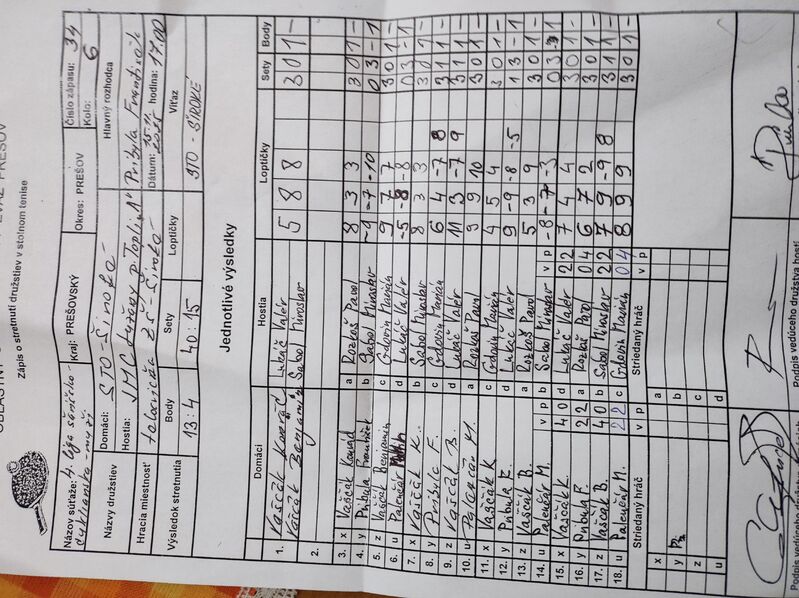 Zápis o stretnutí družstiev v stolnom tenise
Názov súťaže: 4. liga
Kraj: PREŠOVSKÝ
Okres: PREŠOV
Číslo zápasu: 34
Kolo: 6
Názvy družstiev
Domáci: STO - Široké
Hostia: JMC
Hlavný rozhodca
Pribula František
Hracia miestnosť
telocvičňa ZŠ - Široké
Dátum: hodina: 17,00
Výsledok stretnutia
Body
Sety
Loptičky
Víťaz
13:4
40:15
STO - ŠIROKÉ
Jednotlivé výsledky
Domáci Hostia Loptičky Sety Body
1. Vaščák Konrád Lukáč Valér 5 8 8 3 0 1 -
Vaščák Benjamín Sabol Miroslav
2.
3. x Vaščák Konrád a Rozkoš Pavol 8 3 3 3 0 1 -
4. y Pribula František b Sabol Miroslav -9 -7 -10 0 3 - 1
5. z Vaščák Benjamín c Gdovin Marián 9 7 7 3 0 1 -
6. u Palenčár d Lukáč Valér -5 -8 -8 0 3 - 1
7. x Vaščák K. b Sabol Miroslav 8 3 3 3 0 1 -
8. y Pribula F. c Gdovin Marián 6 4 -7 8 3 1 1 -
9. z Vaščák B. d Lukáč Valér 11 3 -7 9 3 1 1 -
10. u Palenčár M. a Rozkoš Pavol 3 9 10 3 0 1 -
11. x Vaščák K. c Gdovin Marián 4 5 4 3 0 1 -
12. y Pribula F. d Lukáč Valér 9 -9 -8 -5 1 3 - 1
13. z Vaščák B. a Rozkoš Pavol 5 3 9 3 0 1 -
14. u Palenčár M. v p b Sabol Miroslav v p -8 -7 -3 0 3 - 1
15. x Vaščák K. 4 0 d Lukáč Valér 2 2 7 4 4 3 0 1 -
16. y Pribula F. 2 2 a Rozkoš Pavol 0 4 6 7 2 3 0 1 -
17. z Vaščák B. 4 0 b Sabol Miroslav 2 2 7 9 -9 8 3 1 1 -
18. u Palenčár M. 2 2 c Gdovin Marián 0 4 8 9 9 3 0 1 -
Striedaný hráč v p Striedaný hráč v p
x a
y b
z c
u d
Podpis vedúceho družstva
Podpis vedúceho družstva hostí